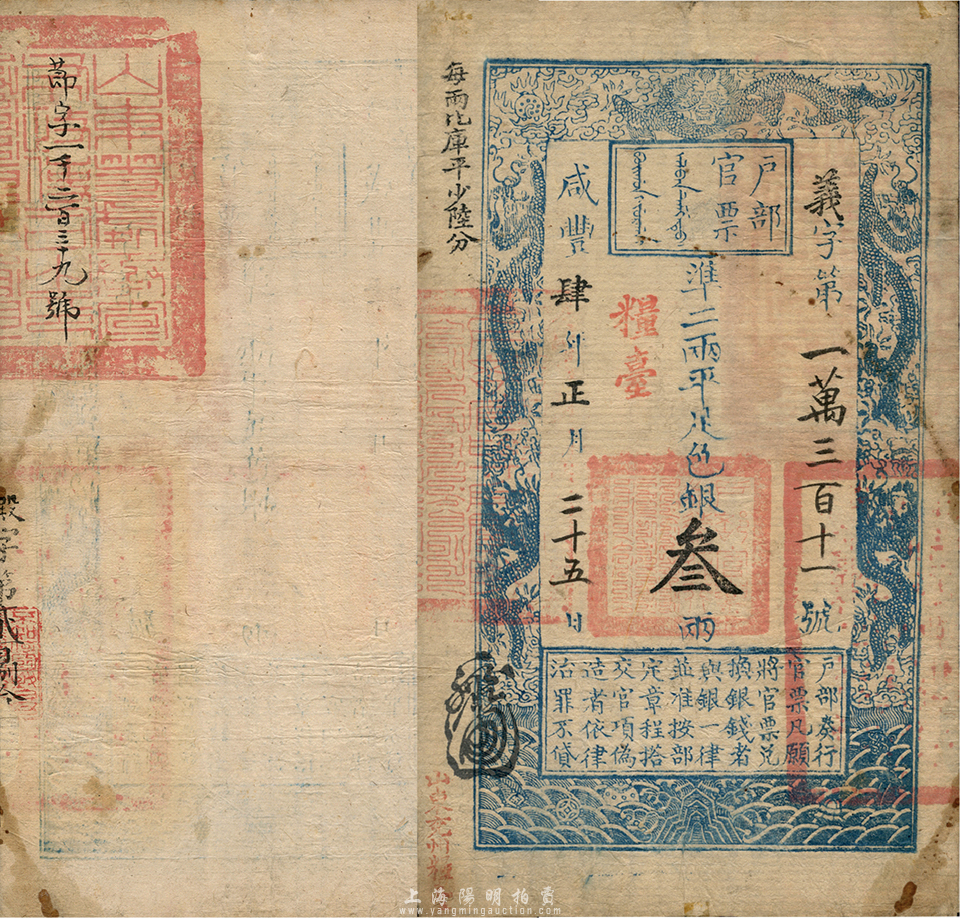 義字第一萬三百十一號
户部
官票
準二兩平足色銀叁兩
糧臺
咸豐肆年正月二十五日
户部奏行
官票凡願
將官票兌
換銀錢者
與銀一律
並准按部
定章程搭
交官項偽
造者依律
治罪不貸
每兩比庫平少陸分
山東兗州糧
節字一千二百三十九號
字第貳
上海陽明拍賣
www.yangmingauction.com